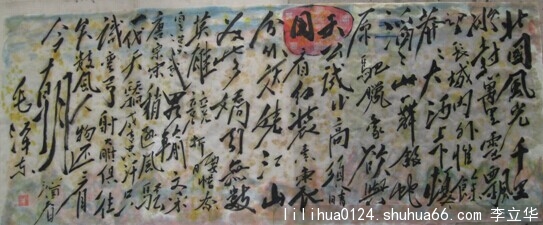 北国风光 千里
冰封万里雪飘
望长城内外惟馀
莽
大河上下顿
滔滔山舞银蛇
原驰腊象欲与
天公试比高须晴
日
看红装素裹
分外妖娆江山
如此多娇引无数
英雄
折腰惜秦
皇汉武略输文采
唐宗宋祖稍逊风骚
一代天骄成吉思汗只
识弯弓射大雕俱往
矣数风人物还看
今朝
毛泽东
lilihua0124.shuhua66.com 李立华